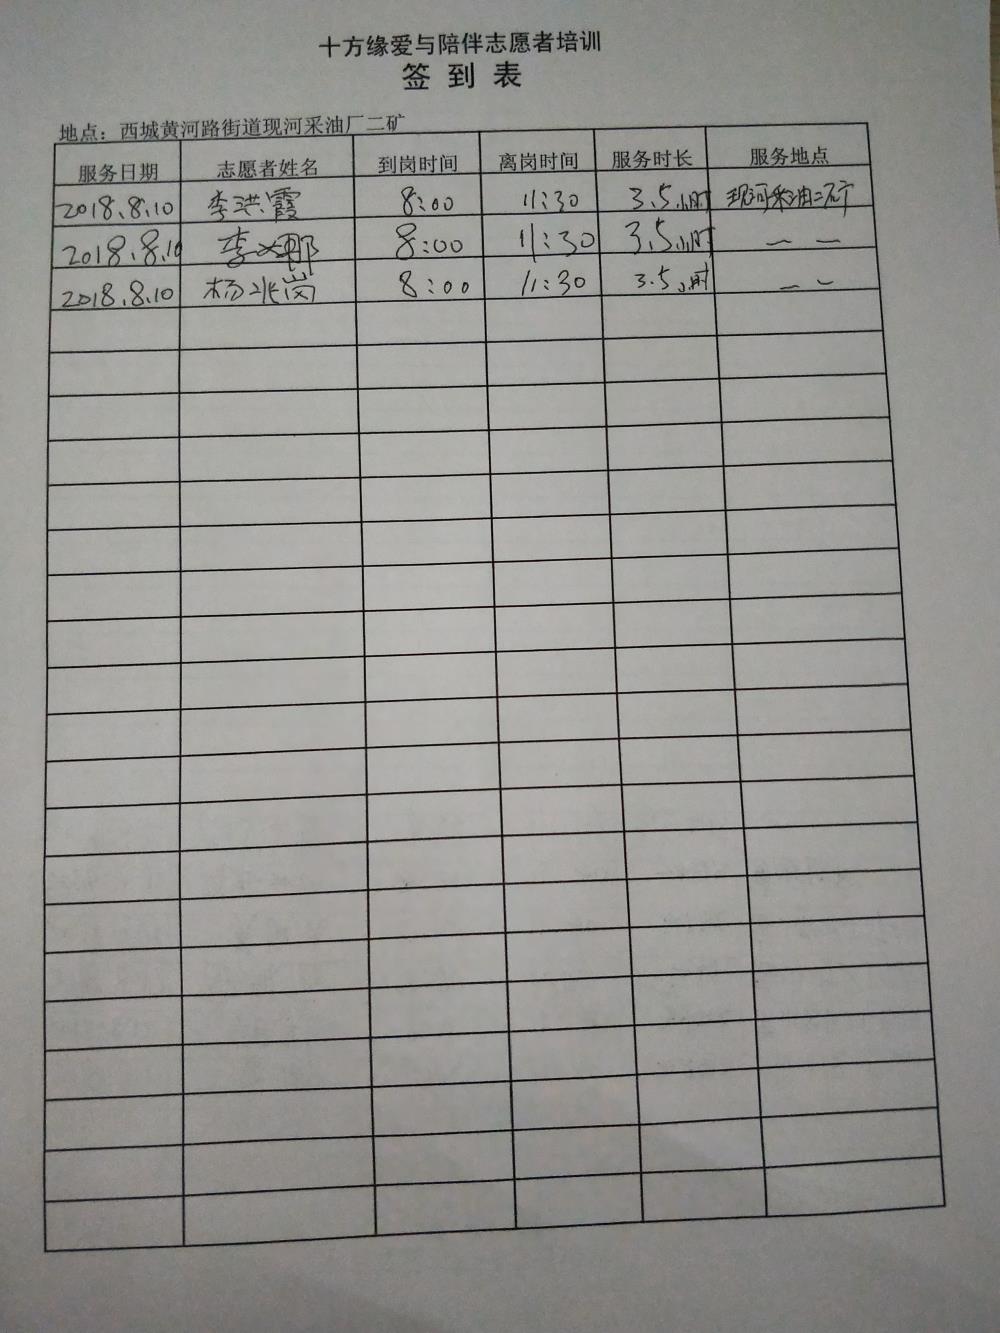 十方缘爱与陪伴志愿者培训
签到表
地点：西城黄河路街道现河采油厂二矿
服务日期 志愿者姓名 到岗时间 离岗时间 服务时长 服务地点
2018.8.10 李洪霞 8:00 11:30 3.5小时 现河采油二矿
2018.8.10 李 娜 8:00 11:30 3.5小时 — —
2018.8.10 杨兆岗 8:00 11:30 3.5小时 — —